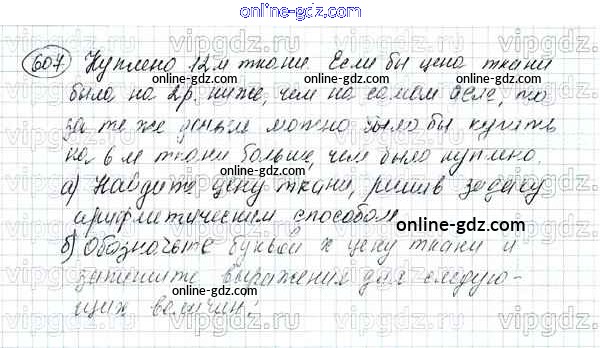 online-gdz.com
607 Куплено 12 м ткани. Если бы цена ткани
была на 2р. ниже, чем на самом деле, то
за те же деньги можно было бы купить
на 6 м ткани больше, чем было куплено.
а) Найдите цену ткани, решив задачу
арифметическим способом.
б) Обозначьте буквой х цену ткани и
запишите выражения для следую-
щих величин:
online-gdz.com
online-gdz.com
online-gdz.com
online-gdz.com
online-gdz.com
online-gdz.com
online-gdz.com
online-gdz.com